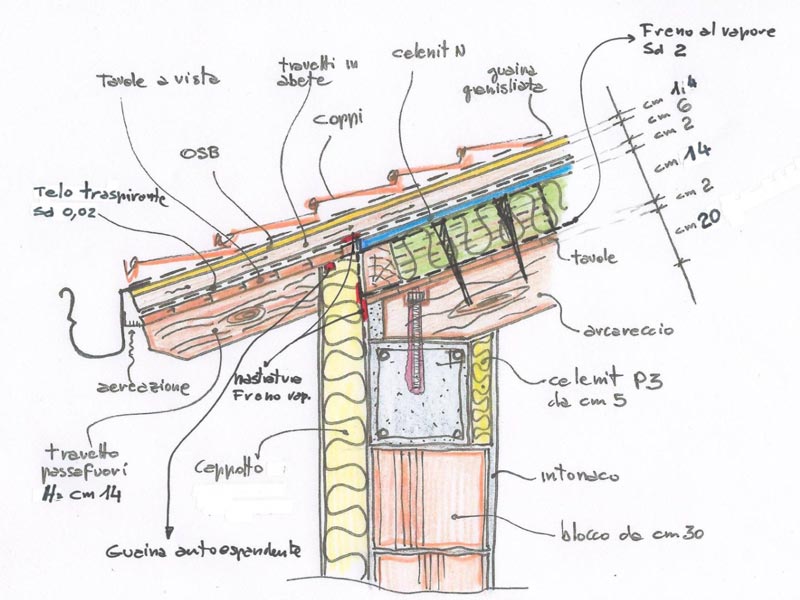 Freno al vapore
Sd 2
Tavole a vista
travetti in
abete
celenit N
guaina
granigliata
OSB
coppi
Telo traspirante
Sd 0,02
cm
cm 6
cm 2
cm 14
cm 2
cm 20
tavole
arcareccio
aereazione
nastratura
Freno vap.
celenit P3
da cm 5
travetto
passafuori
H= cm 14
cappotto
intonaco
blocco da cm 30
Guaina autoespandente